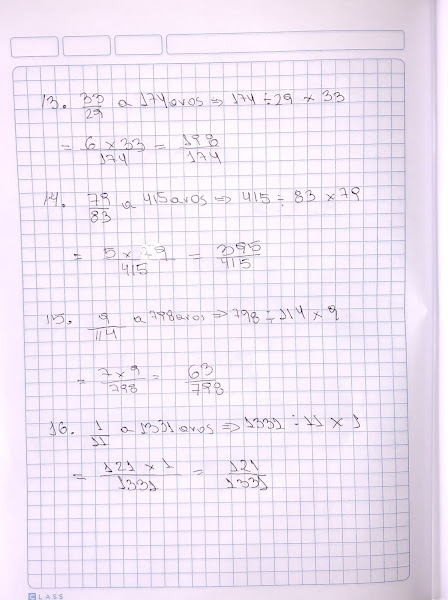 13. 33/29 a 174 avos ⇒ 174 ÷ 29 × 33
= 6 × 33/174 = 198/174
14. 79/83 a 415 avos ⇒ 415 ÷ 83 × 79
= 5 × 79/415 = 395/415
15. 9/114 a 798 avos ⇒ 798 ÷ 114 × 9
= 7 × 9/798 = 63/798
16. 1/11 a 1331 avos ⇒ 1331 ÷ 11 × 1
= 121 × 1/1331 = 121/1331
CLASS